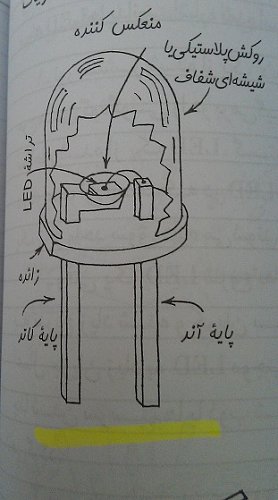 منعکس کننده
روکش پلاستیکی یا
شیشه‌ای شفاف
تراشهٔ LED
زائده
پایهٔ کاتد
پایهٔ آند